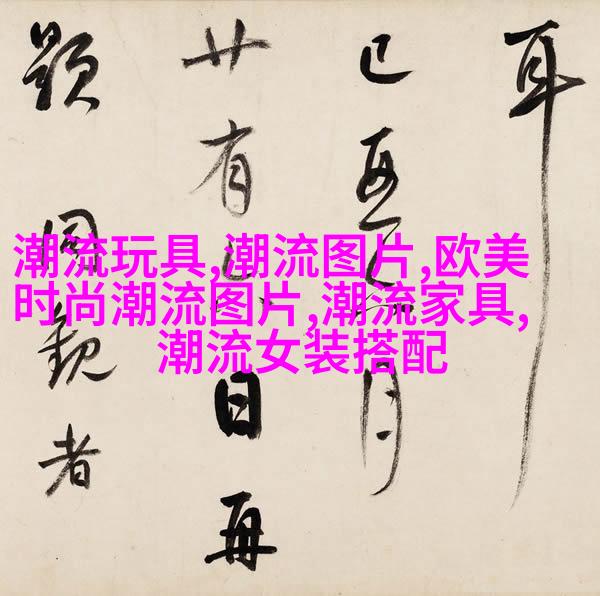 耳
已 月
廿有 日再
題同觀者
潮流玩具,潮流图片,欧美
时尚潮流图片,潮流家具,
潮流女装搭配